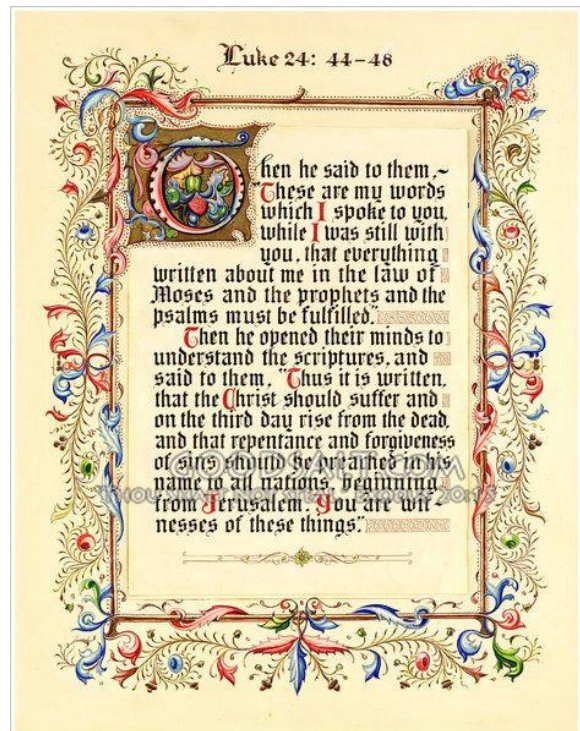 Luke 24: 44-48
Then he said to them,~
"These are my words
which I spoke to you,
while I was still with
you, that everything
written about me in the law of
Moses and the prophets and the
psalms must be fulfilled."
Then he opened their minds to
understand the scriptures, and
said to them, "Thus it is written,
that the Christ should suffer and
on the third day rise from the dead,
and that repentance and forgiveness
of sins should be preached in his
GOODSALT.COM
name to all nations, beginning
"THOU SHALT NOT STEAL" EXODUS 20:15
from Jerusalem. You are wit-
nesses of these things."